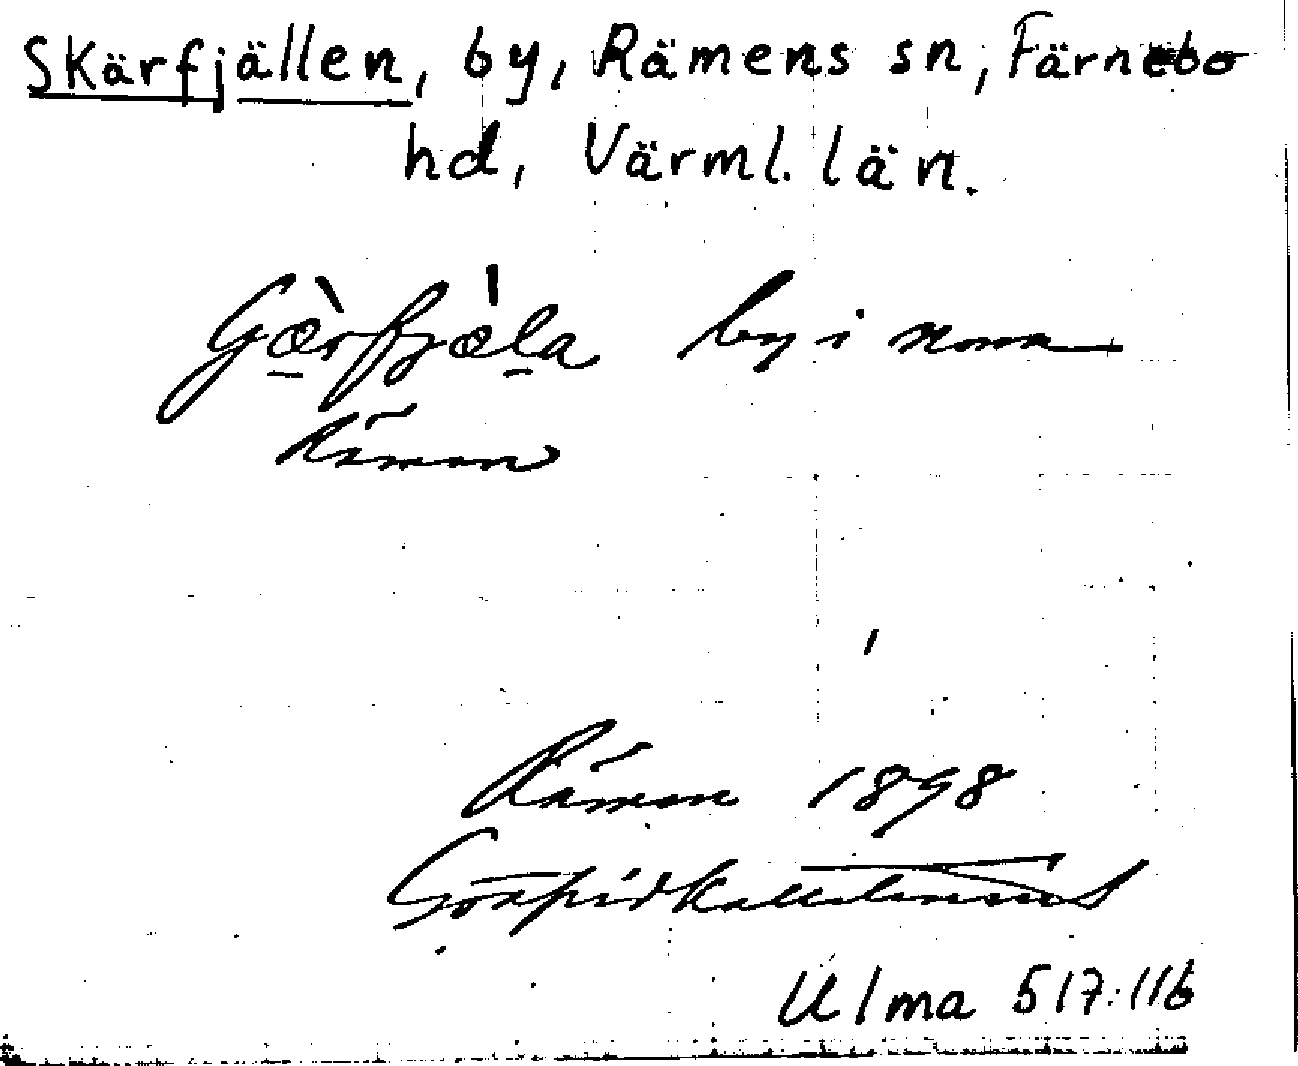 Skärfjällen, by, Rämens sn, Färnebo
hd, Värml. län.
by i norra
Rämen
Rämen 1898
Gottfrid Kallstenius
Ulma 517:116